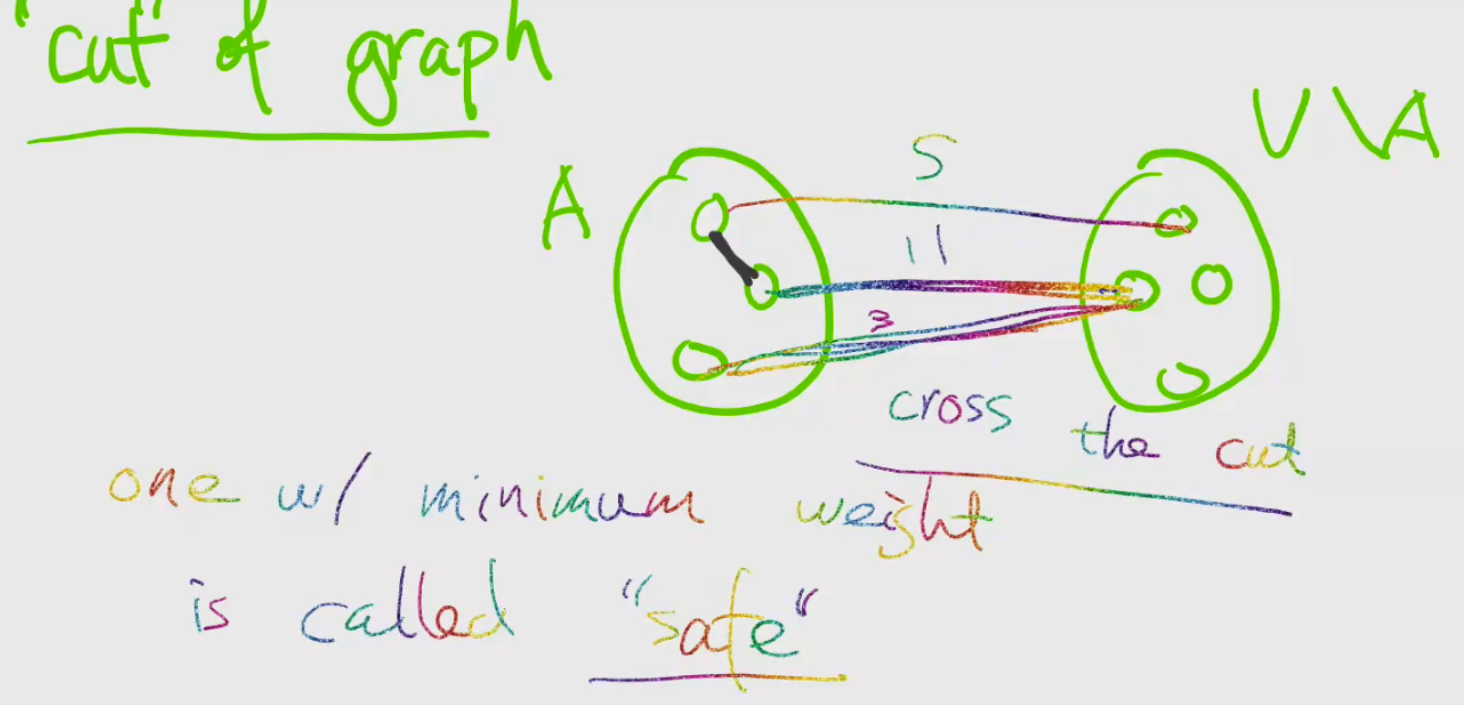 "cut" of graph
V \ A
A
5
11
3
cross the cut
one w/ minimum weight
is called "safe"